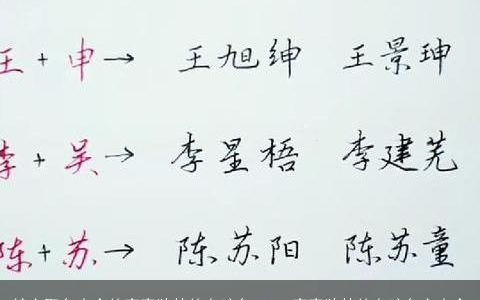 王 + 申 → 王旭绅 王景珅
李 + 吴 → 李星梧 李建芜
陈 + 苏 → 陈苏阳 陈苏童